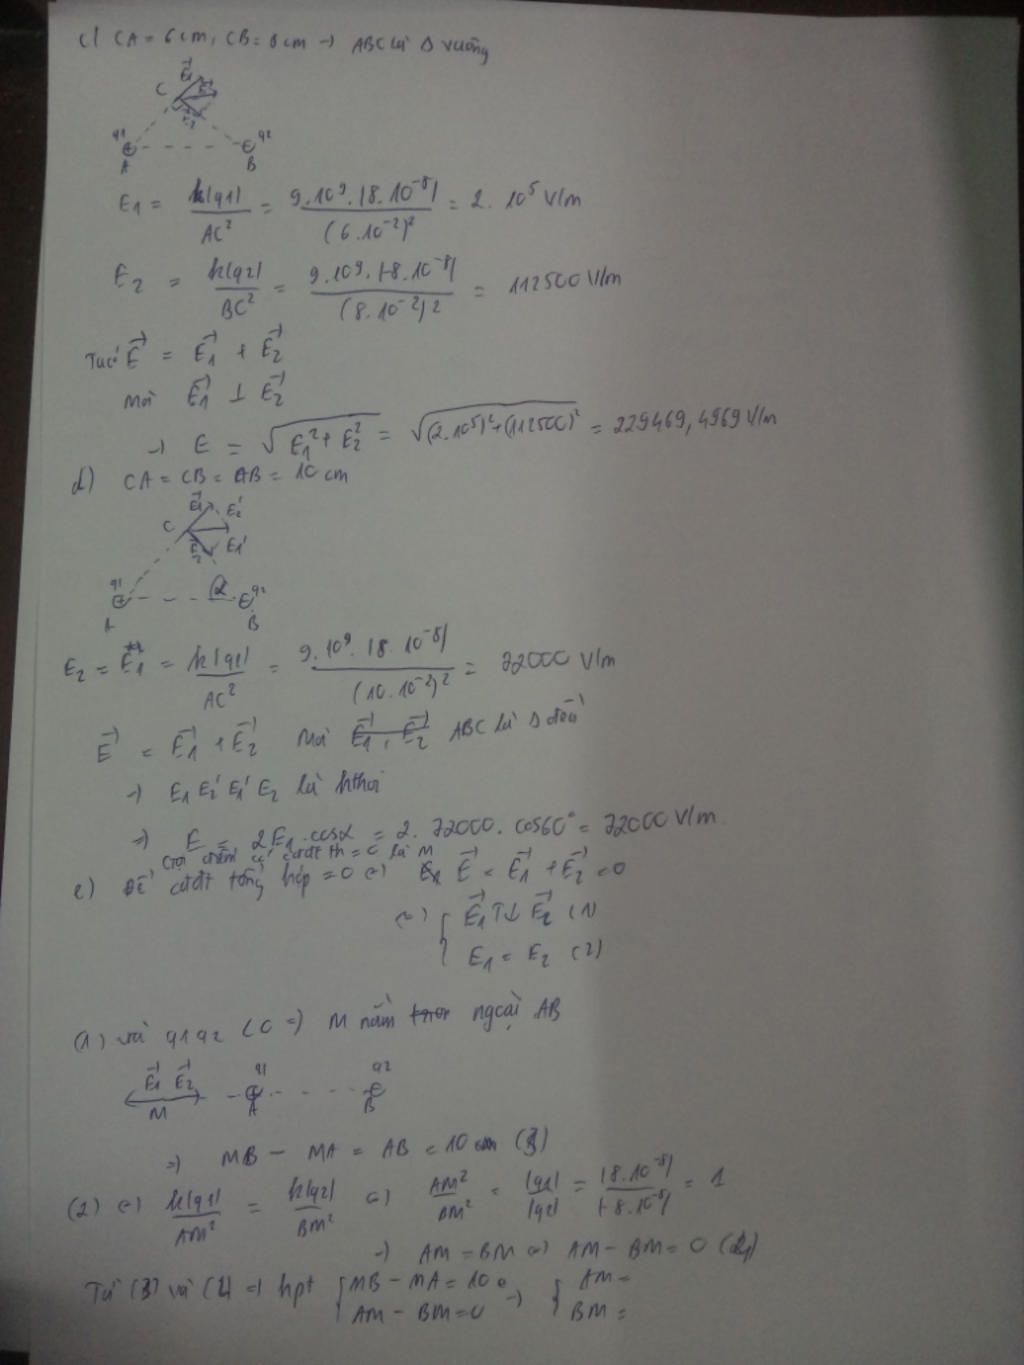 c) CA = 6cm, CB = 8cm → ABC là Δ vuông
C E1 E E2
q1 q2
A B
E1 = k|q1| / AC² = 9.10⁹.|8.10⁻⁸| / (6.10⁻²)² = 2.10⁵ V/m
E2 = k|q2| / BC² = 9.10⁹.|-8.10⁻⁸| / (8.10⁻²)² = 112500 V/m
Ta có E⃗ = E⃗1 + E⃗2
Mà E⃗1 ⊥ E⃗2
→ E = √(E1² + E2²) = √((2.10⁵)² + (112500)²) = 229469,4969 V/m
d) CA = CB = AB = 10 cm
C E⃗1 E2' E⃗2 E1'
q1 α q2
A B
E2 = E1 = k|q1| / AC² = 9.10⁹.|8.10⁻⁸| / (10.10⁻²)² = 72000 V/m
E⃗ = E⃗1 + E⃗2 Mà ABC là Δ đều
→ E1 E2' E1' E2 là hthoi
→ E = 2E1.cosα = 2.72000.cos60° = 72000 V/m
Gọi điểm có cđđt th = 0 là M
e) Để cđđt tổng hợp = 0 ⇔ E⃗ = E⃗1 + E⃗2 = 0
⇔ { E⃗1 ↑↓ E⃗2 (1)
E1 = E2 (2)
(1) và q1q2 < 0 → M nằm ngoài AB
E⃗1 E⃗2 q1 q2
M A B
→ MB - MA = AB = 10 cm (3)
(2) ⇔ k|q1| / AM² = k|q2| / BM² ⇔ AM² / BM² = |q1| / |q2| = |8.10⁻⁸| / |-8.10⁻⁸| = 1
→ AM = BM ⇔ AM - BM = 0 (4)
Từ (3) và (4) → hpt { MB - MA = 10 → { AM =
AM - BM = 0 BM =